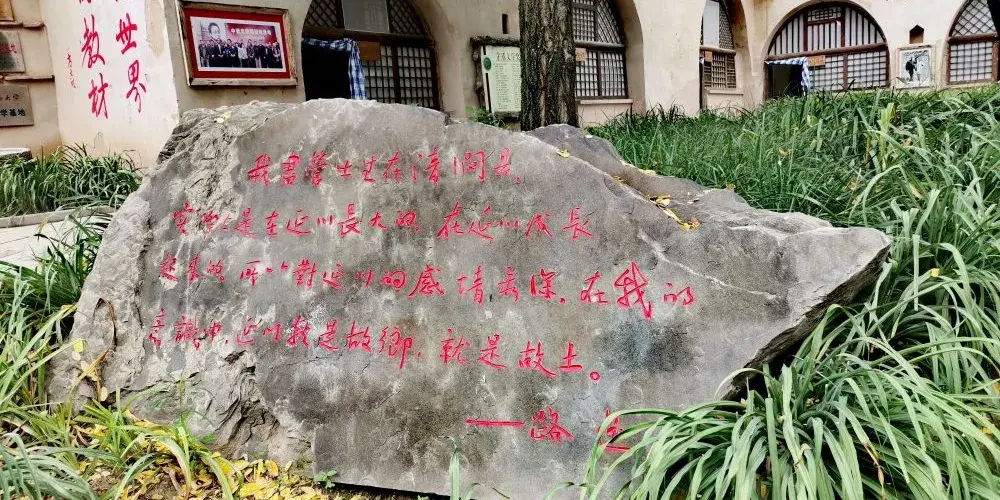 世界
教材
学基地
我盡管出生在清涧县,
实际上是在延川長大的,在延川成長
起来的,所以對延川的感情最深,在我的
意識中,延川就是故鄉,就是故土。
—路